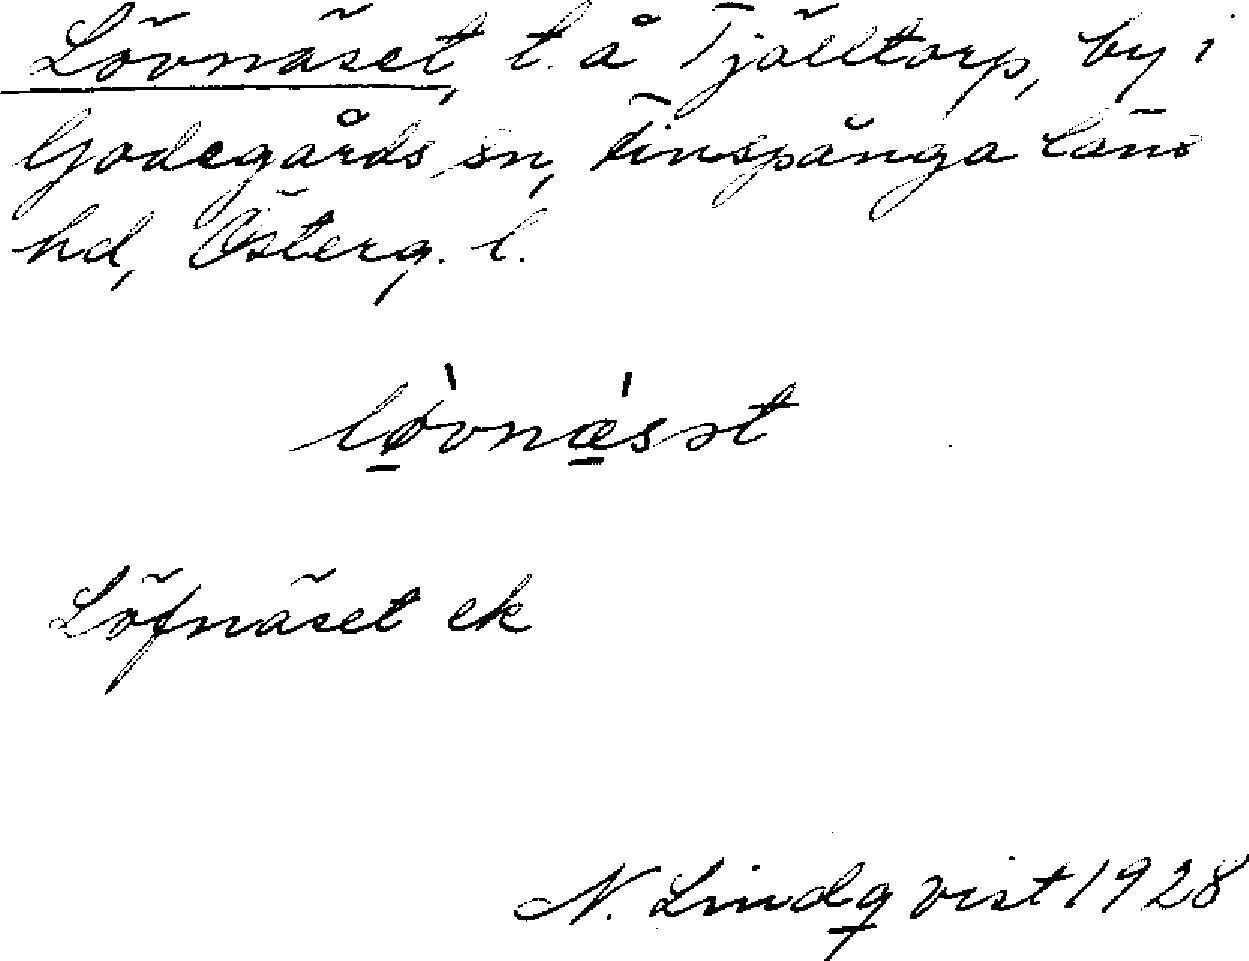 Lövnäset, t. å Tjälltorp, by i
Godegårds sn, Finspånga läns
hd, Österg. l.
lø̀vnǽsət
Löfnäset ek
N. Lindqvist 1928